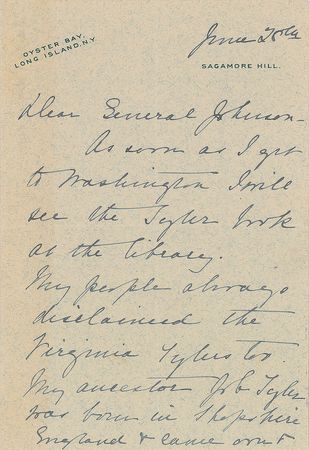 OYSTER BAY,
LONG ISLAND, N.Y.
June 25th
SAGAMORE HILL.
Dear General Johnson-
As soon as I get
to Washington I will
see the Tyler book
at the library.
My people always
disclaimed the
Virginia Tylers too.
My ancestor Job Tyler
was born in Shropshire
England & came over